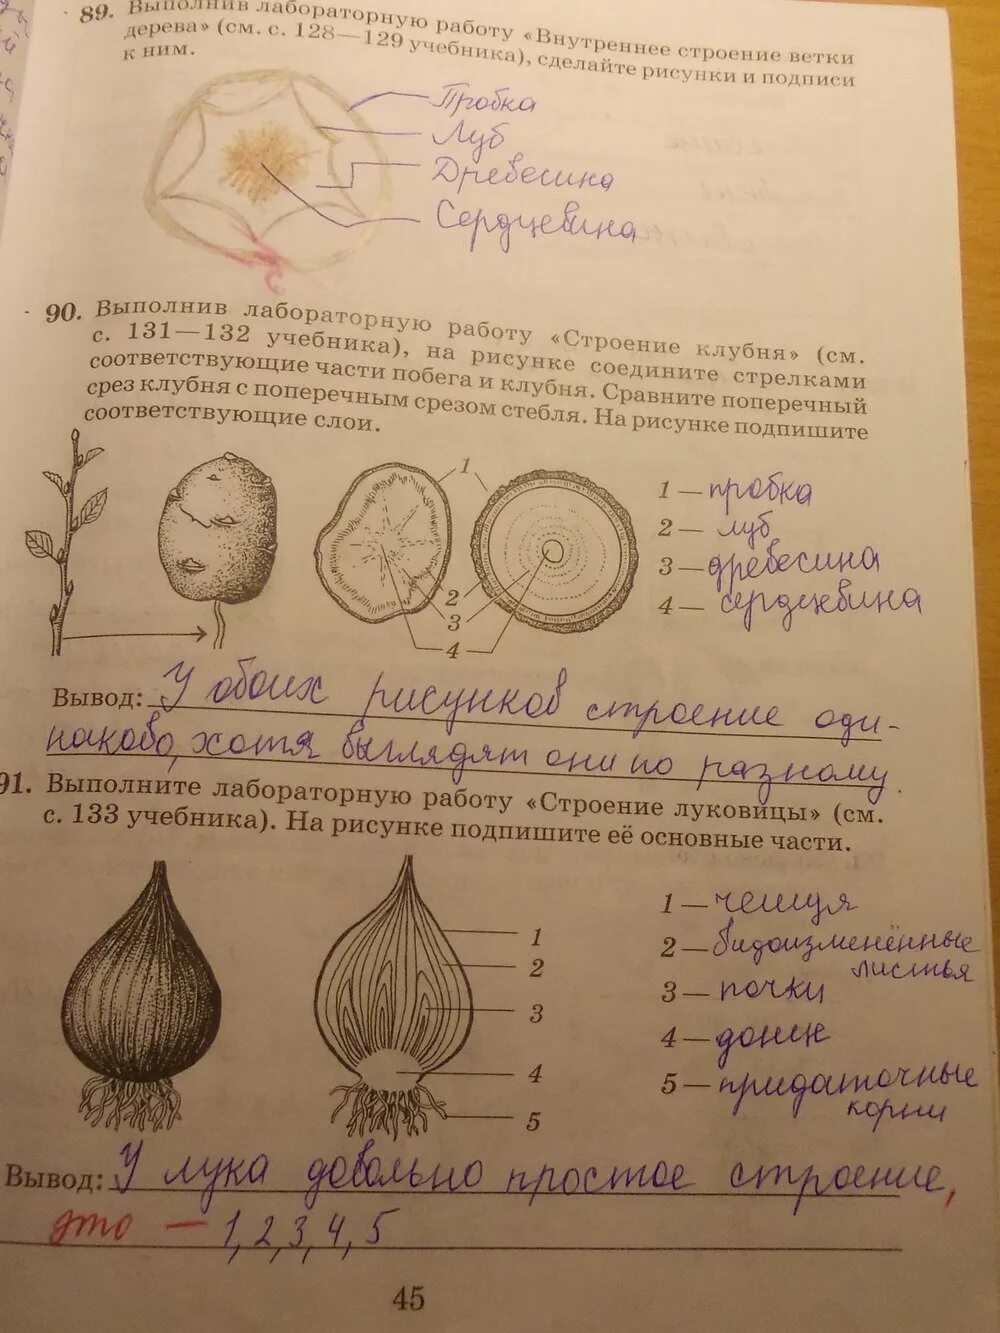 89. Выполнив лабораторную работу «Внутреннее строение ветки
дерева» (см. с. 128—129 учебника), сделайте рисунки и подписи
к ним.
Пробка
Луб
Древесина
Сердцевина
90. Выполнив лабораторную работу «Строение клубня» (см.
с. 131—132 учебника), на рисунке соедините стрелками
соответствующие части побега и клубня. Сравните поперечный
срез клубня с поперечным срезом стебля. На рисунке подпишите
соответствующие слои.
1
2
3
4
1 — пробка
2 — луб
3 — древесина
4 — сердцевина
Вывод: У обоих рисунков строение оди-
наково, хотя выглядят они по разному.
91. Выполните лабораторную работу «Строение луковицы» (см.
с. 133 учебника). На рисунке подпишите её основные части.
1
2
3
4
5
1 — чешуя
2 — видоизменённые
листья
3 — почки
4 — донце
5 — придаточные
корни
Вывод: У лука довольно простое строение,
это — 1, 2, 3, 4, 5
45